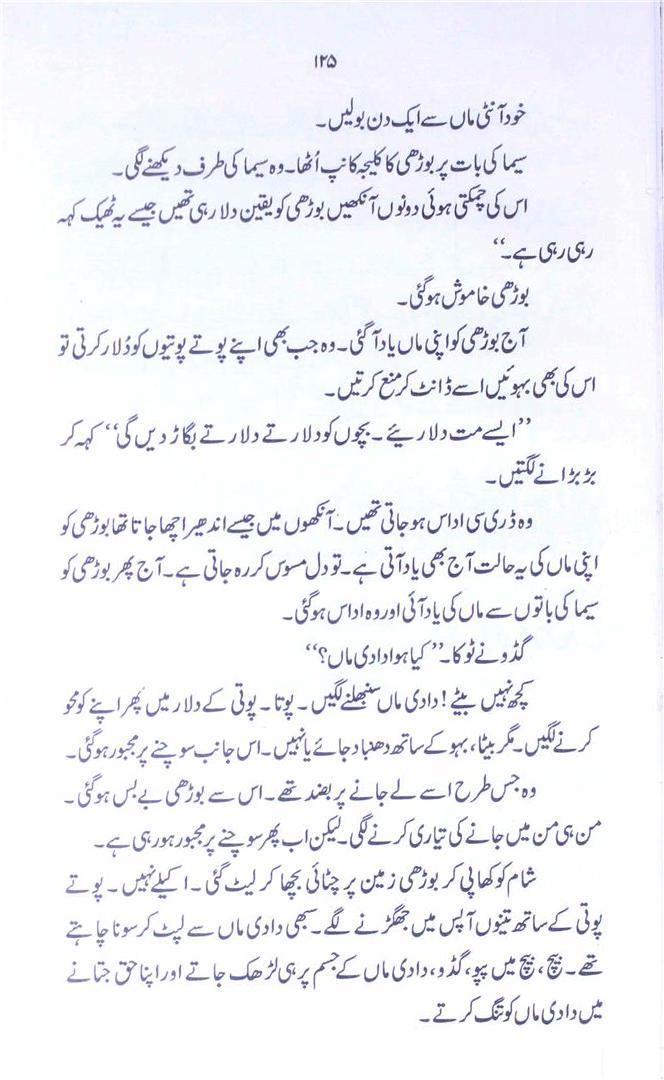 ۱۲۵
خود آنٹی ماں سے ایک دن بولیں۔
سیما کی بات پر بوڑھی کا کلیجہ کانپ اُٹھا۔ وہ سیما کی طرف دیکھنے لگی۔
اس کی چمکتی ہوئی دونوں آنکھیں بوڑھی کو یقین دلا رہی تھیں جیسے یہ ٹھیک کہہ
رہی رہی ہے۔‘‘
بوڑھی خاموش ہوگئی۔
آج بوڑھی کو اپنی ماں یاد آگئی۔ وہ جب بھی اپنے پوتے پوتیوں کو دُلار کرتی تو
اس کی بھی بہوئیں اسے ڈانٹ کر منع کرتیں۔
’’ایسے مت دلاریئے۔ بچوں کو دلارتے دلارتے بگاڑ دیں گی‘‘ کہہ کر
بڑبڑانے لگتیں۔
وہ ڈری سی اداس ہو جاتی تھیں۔ آنکھوں میں جیسے اندھیرا چھا جاتا تھا بوڑھی کو
اپنی ماں کی یہ حالت آج بھی یاد آتی ہے۔ تو دل مسوس کر رہ جاتی ہے۔ آج پھر بوڑھی کو
سیما کی باتوں سے ماں کی یاد آئی اور وہ اداس ہوگئی۔
گڈو نے ٹوکا۔ ’’کیا ہوا دادی ماں؟‘‘
کچھ نہیں بیٹے! دادی ماں سنبھلنے لگیں۔ پوتا۔ پوتی کے دلار میں پھر اپنے کو محو
کرنے لگیں۔ مگر بیٹا، بہو کے ساتھ دھنباد جائے یا نہیں۔ اس جانب سوچنے پر مجبور ہوگئی۔
وہ جس طرح اسے لے جانے پر بضد تھے۔ اس سے بوڑھی بے بس ہوگئی۔
من ہی من میں جانے کی تیاری کرنے لگی۔ لیکن اب پھر سوچنے پر مجبور ہو رہی ہے۔
شام کو کھا پی کر بوڑھی زمین پر چٹائی بچھا کر لیٹ گئی۔ اکیلے نہیں۔ پوتے
پوتی کے ساتھ تینوں آپس میں جھگڑنے لگے۔ سبھی دادی ماں سے لپٹ کر سونا چاہتے
تھے۔ بیچ، بیچ میں پپو، گڈو، دادی ماں کے جسم پر ہی لڑھک جاتے اور اپنا حق جتانے
میں دادی ماں کو تنگ کرتے۔